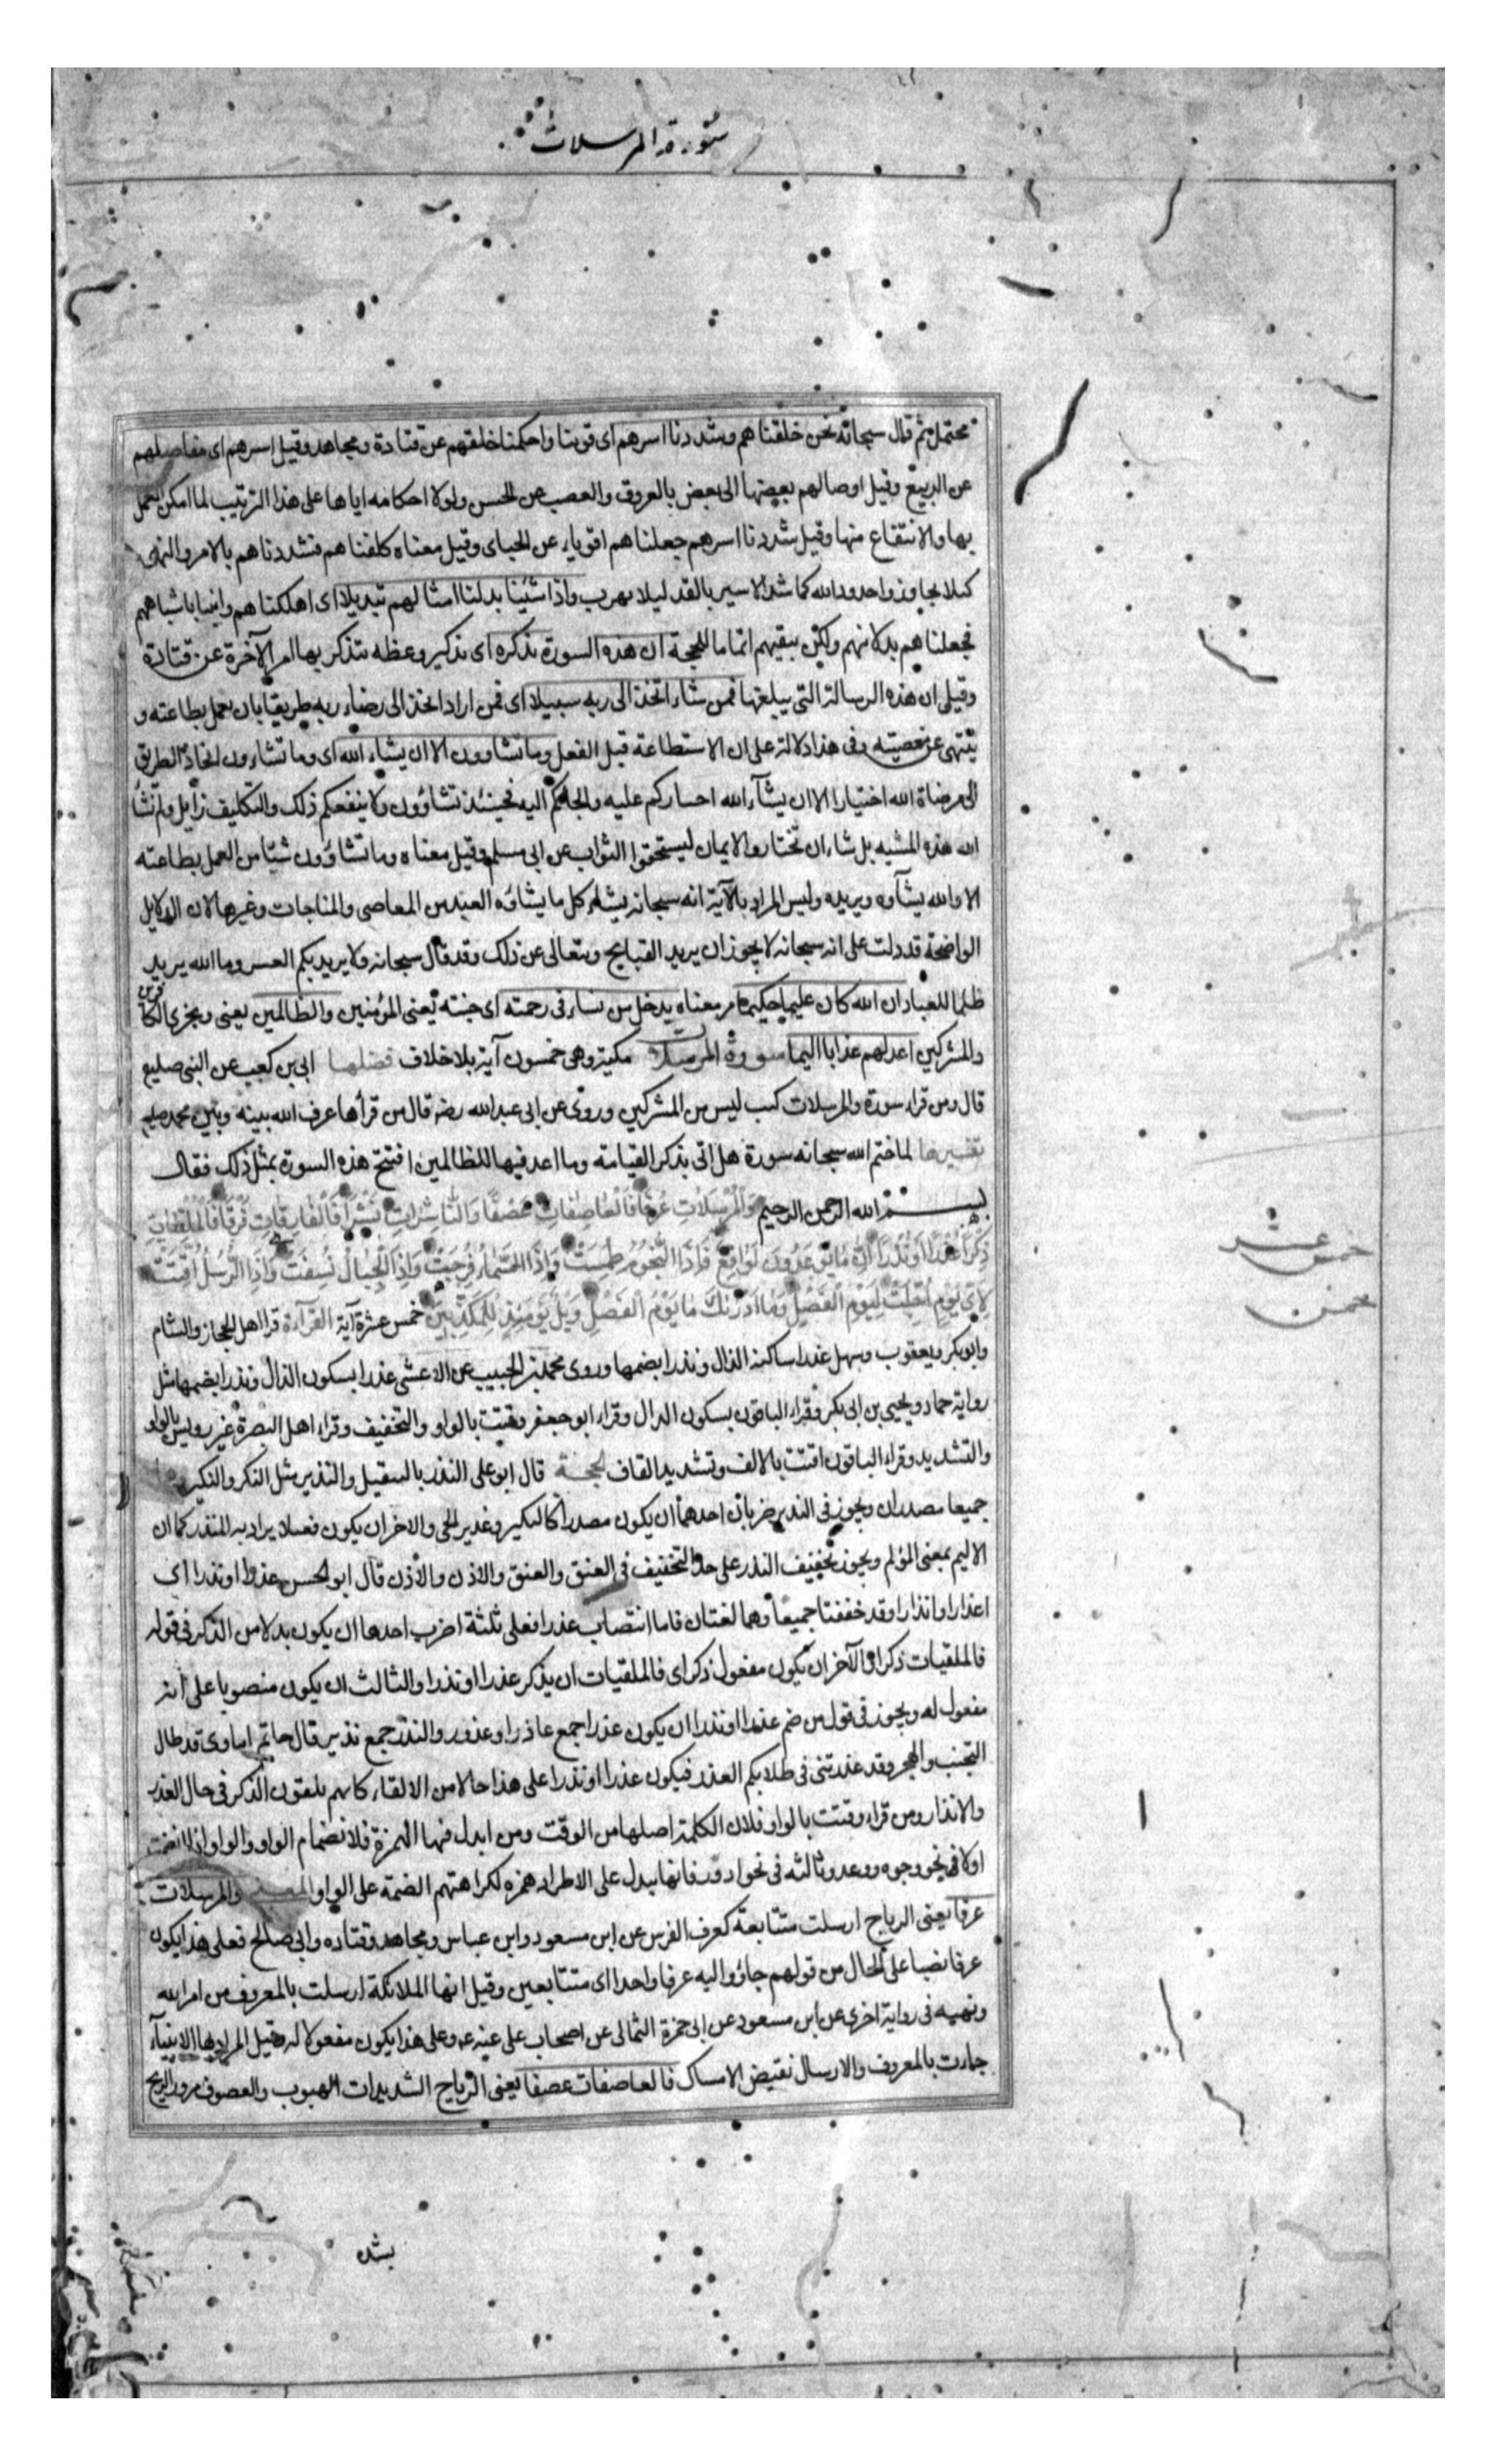 سورة المرسلات
محتمل ثم قال سبحانه نحن خلقناهم وشددنا اسرهم اى قوينا واحكمنا خلقهم عن قتادة ومجاهد وقيل اسرهم اى مفاصلهم
عن الربيع وقيل اوصالهم بعضها الى بعض بالعروق والعصب عن الحسن ولولا احكامه اياها على هذا الترتيب لما امكن العمل
بها والانتفاع منها وقيل شددنا اسرهم جعلناهم اقوياء عن الجباى وقيل معناه كلفناهم فشددناهم بالامر والنهى
كيلا يجاوزوا حدود الله كما شد الاسير بالقد ليلا يهرب واذا شئنا بدلنا امثالهم تبديلا اى اهلكناهم واتينا باشباههم
فجعلناهم بدلا منهم ولكن نبقيهم اتماما للحجة ان هذه السورة تذكره اى تذكير وعظه يتذكر بها امر الآخرة عن قتادة
وقيل ان هذه الرسالة التى يبلغها فمن شاء اتخذ الى ربه سبيلا اى فمن اراد اتخذ الى رضاء ربه طريقا بان يعمل بطاعته و
ينتهى عن معصيته وفى هذا دلالة على ان الاستطاعة قبل الفعل وما تشاوون الا ان يشاء الله اى وما تشاءون اتخاذ الطريق
الى مرضاة الله اختيارا الا ان يشآء الله اجباركم عليه والجاكم اليه فحينئذ تشاؤون ولا ينفعكم ذلك والتكليف زايل ولم يشأ
الله هذه المشيه بل شاء ان تختاروا الايمان ليستحقوا الثواب عن ابى مسلم وقيل معناه وما تشاؤون شيئا من العمل بطاعته
الا والله يشآوه ويريده وليس المراد بالآية انه سبحانه يشاء كل ما يشاؤه العبد من المعاصى والمناجات وغيرها لان الدلايل
الواضحة قد دلت على انه سبحانه لا يجوز ان يريد القبايح ويتعالى عن ذلك وقد قال سبحانه ولا يريد بكم العسر وما الله يريد
ظلما للعباد ان الله كان عليما حكيما مر معناه يدخل من يشاء فى رحمته اى جنته يعنى المؤمنين والظالمين يعنى ويجزى الكافرين
والمشركين اعد لهم عذابا اليما سورة المرسلات مكية وهى خمسون آية بلا خلاف فضلها ابى بن كعب عن النبى صلعم
قال ومن قراء سورة والمرسلات كتب ليس من المشركين وروى عن ابى عبد الله رضه قال من قرأها عرف الله بينه وبين محمد صلعم
تفسيرها لما ختم الله سبحانه سورة هل اتى بذكر القيامة وما اعد فيها للظالمين افتتح هذه السورة بمثل ذلك فقال
بسم الله الرحمن الرحيم وَالْمُرْسَلَاتِ عُرْفًا فَالْعَاصِفَاتِ عَصْفًا وَالنَّاشِرَاتِ نَشْرًا فَالْفَارِقَاتِ فَرْقًا فَالْمُلْقِيَاتِ
ذِكْرًا عُذْرًا اَوْ نُذْرًا اِنَّمَا تُوعَدُونَ لَوَاقِعٌ فَاِذَا النُّجُومُ طُمِسَتْ وَاِذَا السَّمَاءُ فُرِجَتْ وَاِذَا الْجِبَالُ نُسِفَتْ وَاِذَا الرُّسُلُ اُقِّتَتْ
لِاَىِّ يَوْمٍ اُجِّلَتْ لِيَوْمِ الْفَصْلِ وَمَا اَدْرٰيكَ مَا يَوْمُ الْفَصْلِ وَيْلٌ يَوْمَئِذٍ لِلْمُكَذِّبِينَ خمس عشرة آية القرآءة قرا اهل الحجاز والشام
وابو بكر ويعقوب وسهل عذرا ساكنة الذال ونذرا بضمها وروى محمد بن الحبيب عن الاعشى عذرا بسكون الذال ونذرا بضمها مثل
رواية حماد ويحيى بن ابى بكر وقراء الباقون بسكون الدال وقراء ابو جعفر وقتت بالواو والتخفيف وقراء اهل البصرة غير رويس بالواو
والتشديد وقراء الباقون اقتت بالالف وتشديد القاف الحجة قال ابو على النذر بالتثقيل والنذير مثل النكر والنكير
جميعا مصدران ويجوز فى النذير ضربان احدهما ان يكون مصدرا كالنكير وعذير الحى والاخر ان يكون فعيلا يراد به المنذر كما ان
الاليم بمعنى المؤلم ويجوز تخفيف النذر على حد التخفيف فى العنق والعنق والاذن والأذن قال ابو الحسن عذرا او نذرا اى
اعذارا وانذارا وقد خففتا جميعا وهما لغتان فاما انتصاب عذرا فعلى ثلثة اضرب احدها ان يكون بدلا من الذكر فى قوله
فالملقيات ذكرا والآخر ان يكون مفعول ذكرا اى فالملقيات ان يذكر عذرا او نذرا والثالث ان يكون منصوبا على انه
مفعول له ويجوز فى قول من ضم عذرا او نذرا ان يكون عذرا جمع عاذر او عذور والنذر جمع نذير قال حاتم اماوى قد طال
التجنب والهجر وقد عذرتنى فى طلابكم العذر فيكون عذرا او نذرا على هذا حالا من الالقاء كانهم يلقون الذكر فى حال العذر
والانذار ومن قراء وقتت بالواو فلان الكلمة اصلها من الوقت ومن ابدل منها الهمزة فلانضمام الواو والواو اذا انضمت
اولا فى نحو وجوه ووعد وثالثه فى نحو ادور فانها يبدل على الاطراد همزه لكراهتهم الضمة على الواو المعنى والمرسلات
عرفا يعنى الرياح ارسلت متتابعة كعرف الفرس عن ابن مسعود وابن عباس ومجاهد وقتاده وابى صالح فعلى هذا يكون
عرفا نصبا على الحال من قولهم جاؤوا اليه عرفا واحدا اى متتابعين وقيل انها الملائكة ارسلت بالمعروف من امر الله
ونهيه فى رواية اخرى عن ابن مسعود عن ابى حمزة الثمالى عن اصحاب على عنه عم وعلى هذا يكون مفعولا له وقيل المراد بها الانبيآء
جاءت بالمعروف والارسال نقيض الامساك فالعاصفات عصفا يعنى الرياح الشديدات الهبوب والعصوف مرور الريح
بشده